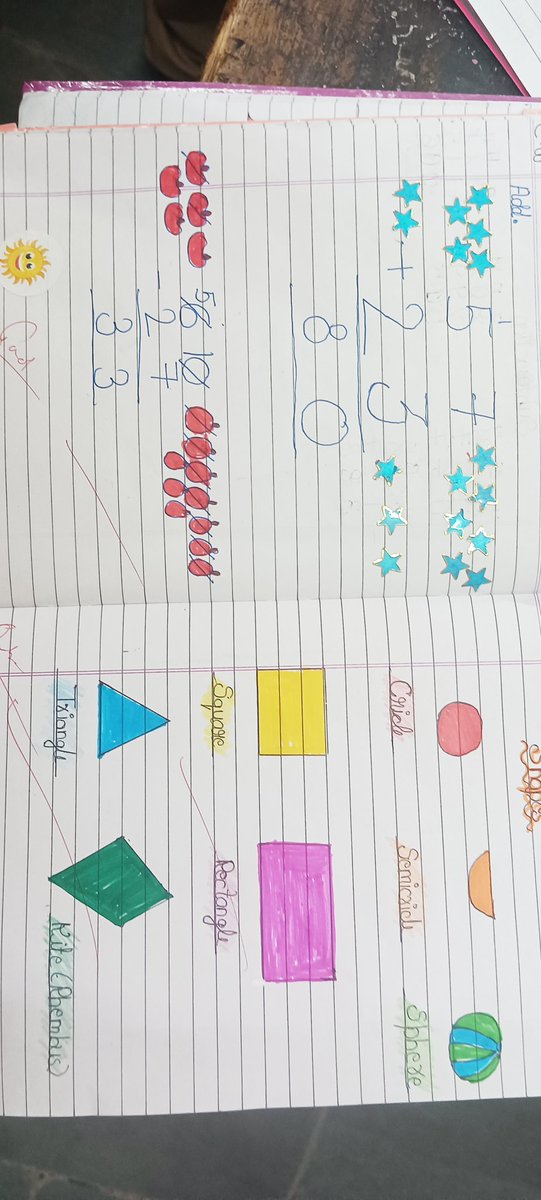 C.W
Add.
1
5 7
+ 2 3
8 0
5
6 10
- 2 7
3 3
Good
Shapes
Circle Semicircle Sphere
Square Rectangle
Triangle Kite (Rhombus)